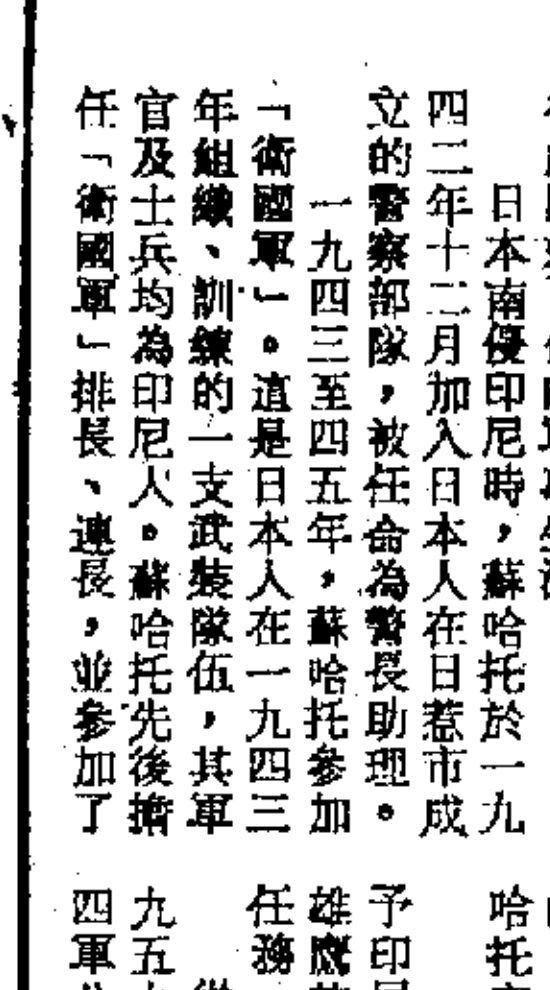 日本南侵印尼時，蘇哈托於一九
四二年十二月加入日本人在日惹市成
立的警察部隊，被任命為警長助理。
一九四三至四五年，蘇哈托參加
「衛國軍」。這是日本人在一九四三
年組織、訓練的一支武裝隊伍，其軍
官及士兵均為印尼人。蘇哈托先後擔
任「衛國軍」排長、連長，並參加了
哈托
予印
雄鷹
任務
九五
四軍